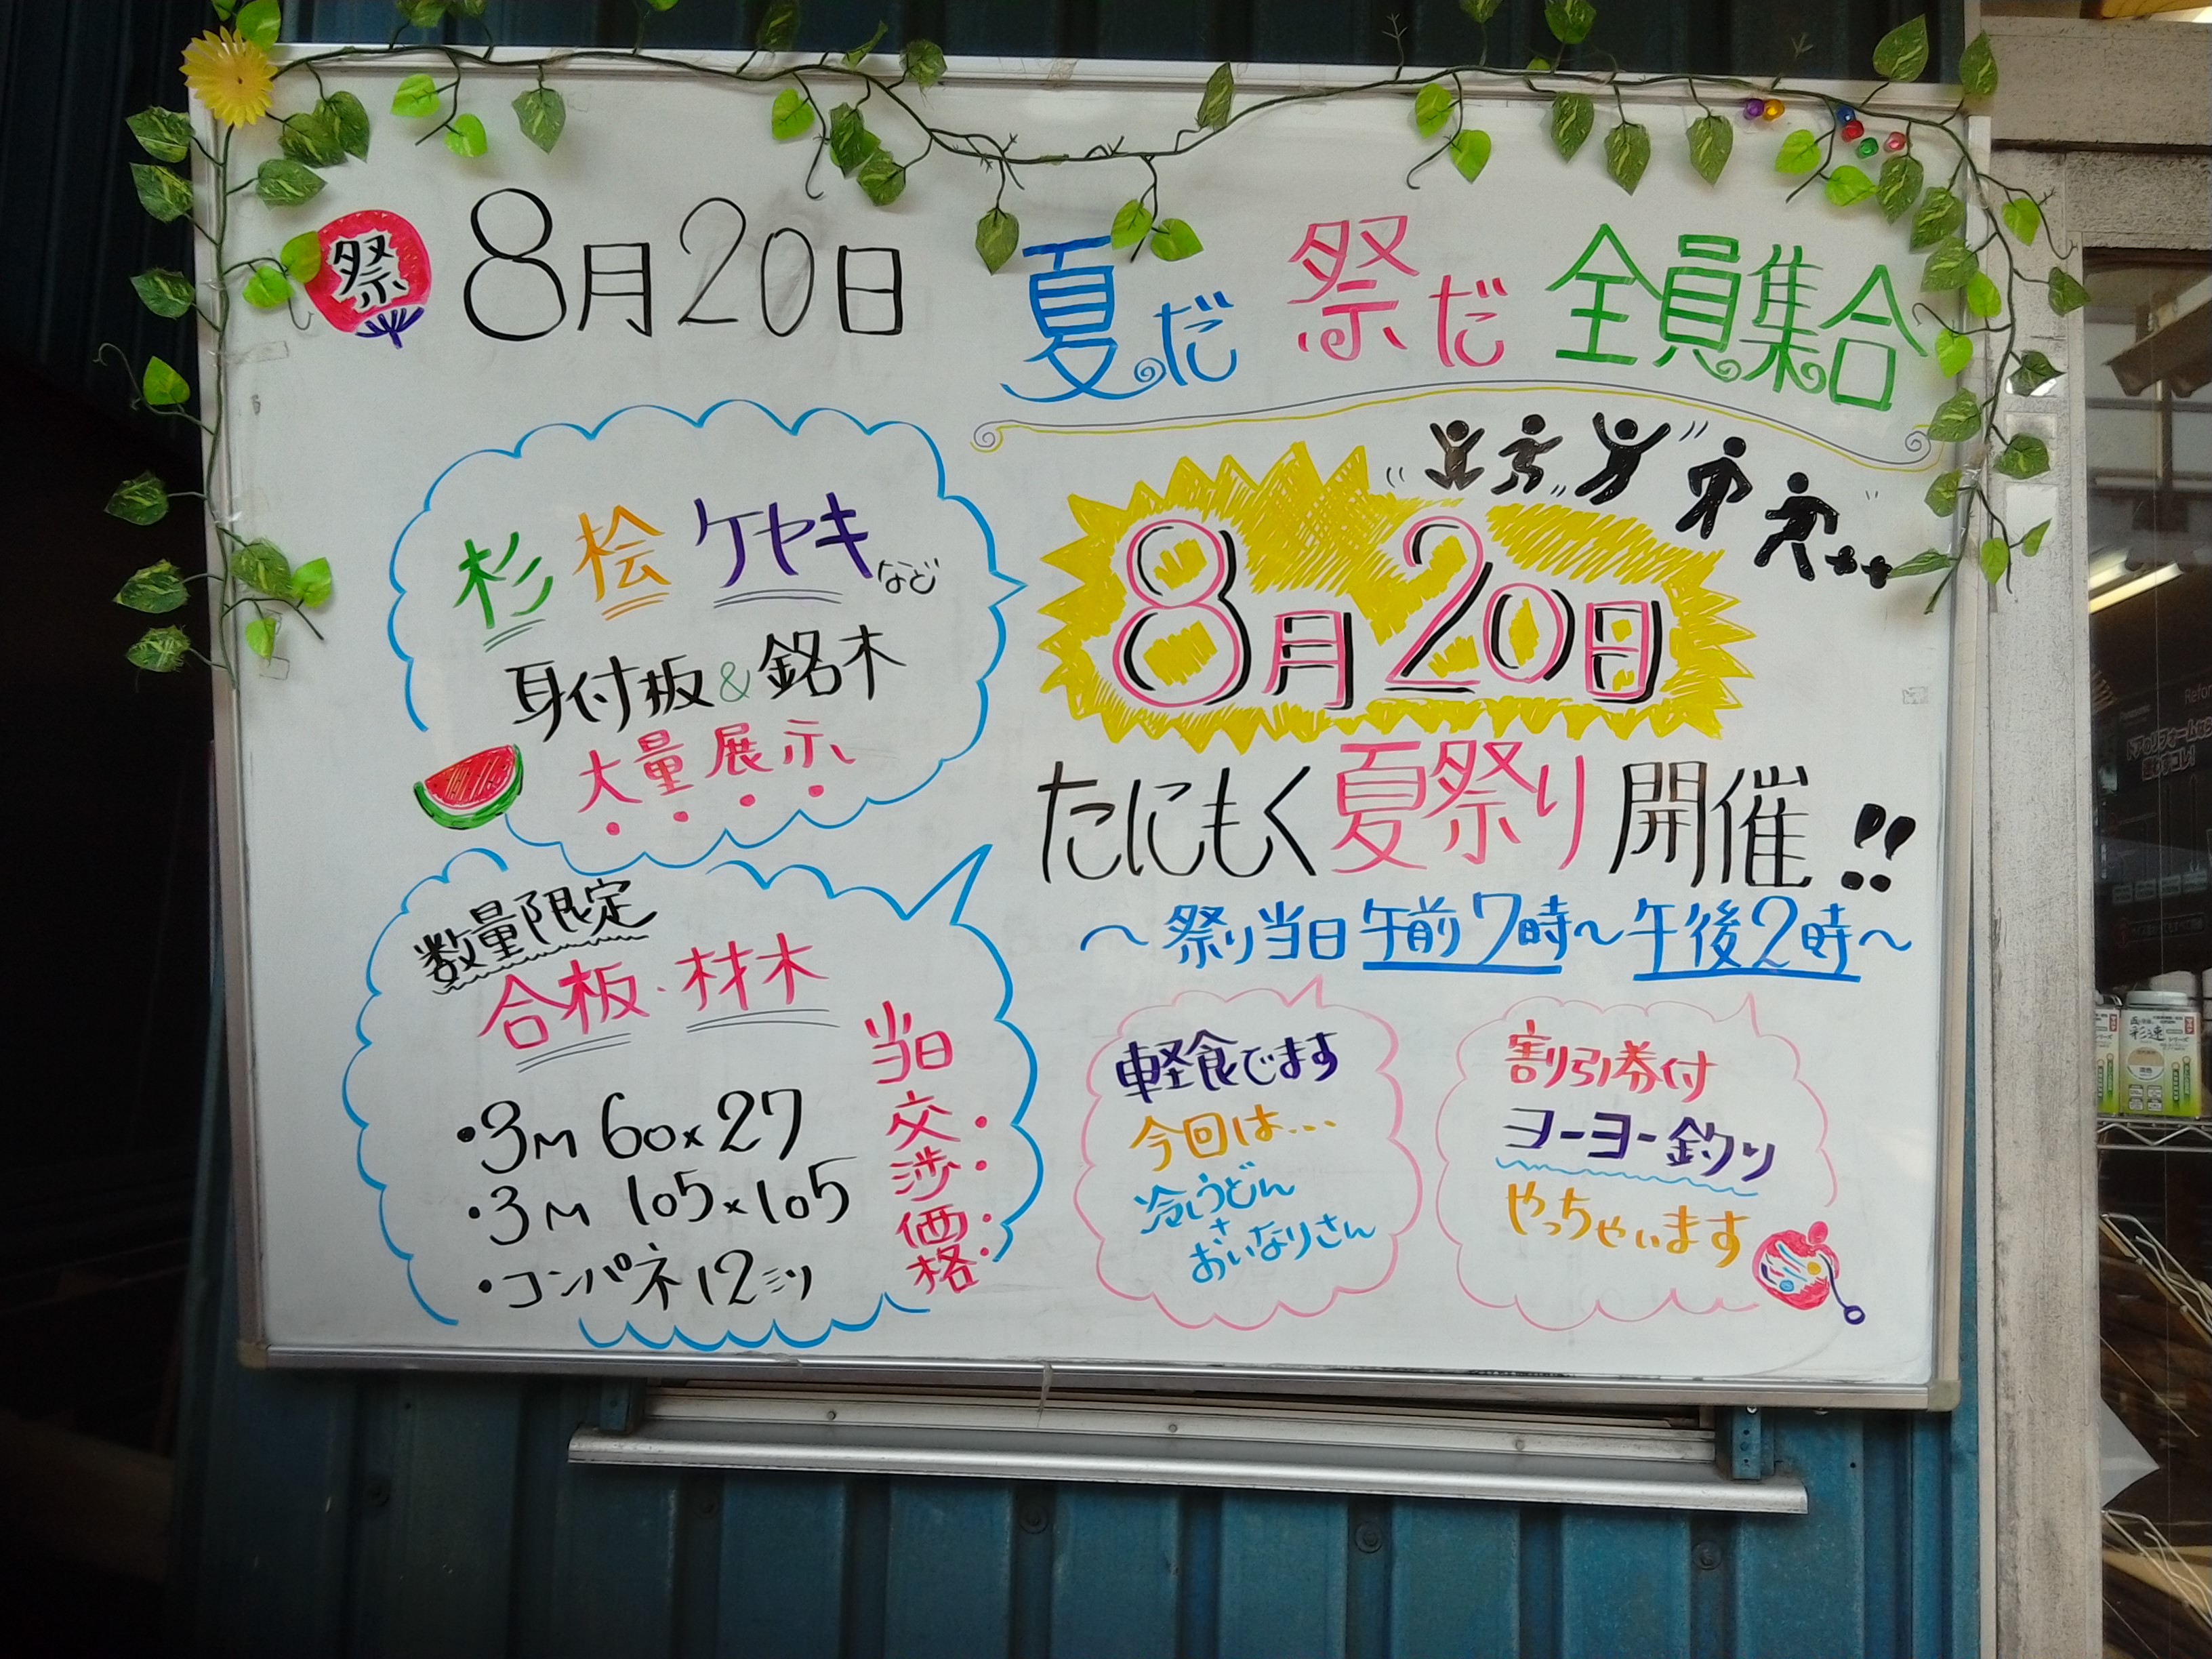 祭
8月20日
夏だ 祭だ 全員集合
杉 桧 ケヤキなど
耳付板&銘木
大量展示
8月20日
たにもく夏祭り開催!!
～祭り当日午前7時～午後2時～
数量限定
合板・材木
・3M 60×27
・3M 105×105
・コンパネ12ミリ
当日交渉価格
軽食でます
今回は…
冷しうどん
+
おいなりさん
割引券付
ヨーヨー釣り
やっちゃいます